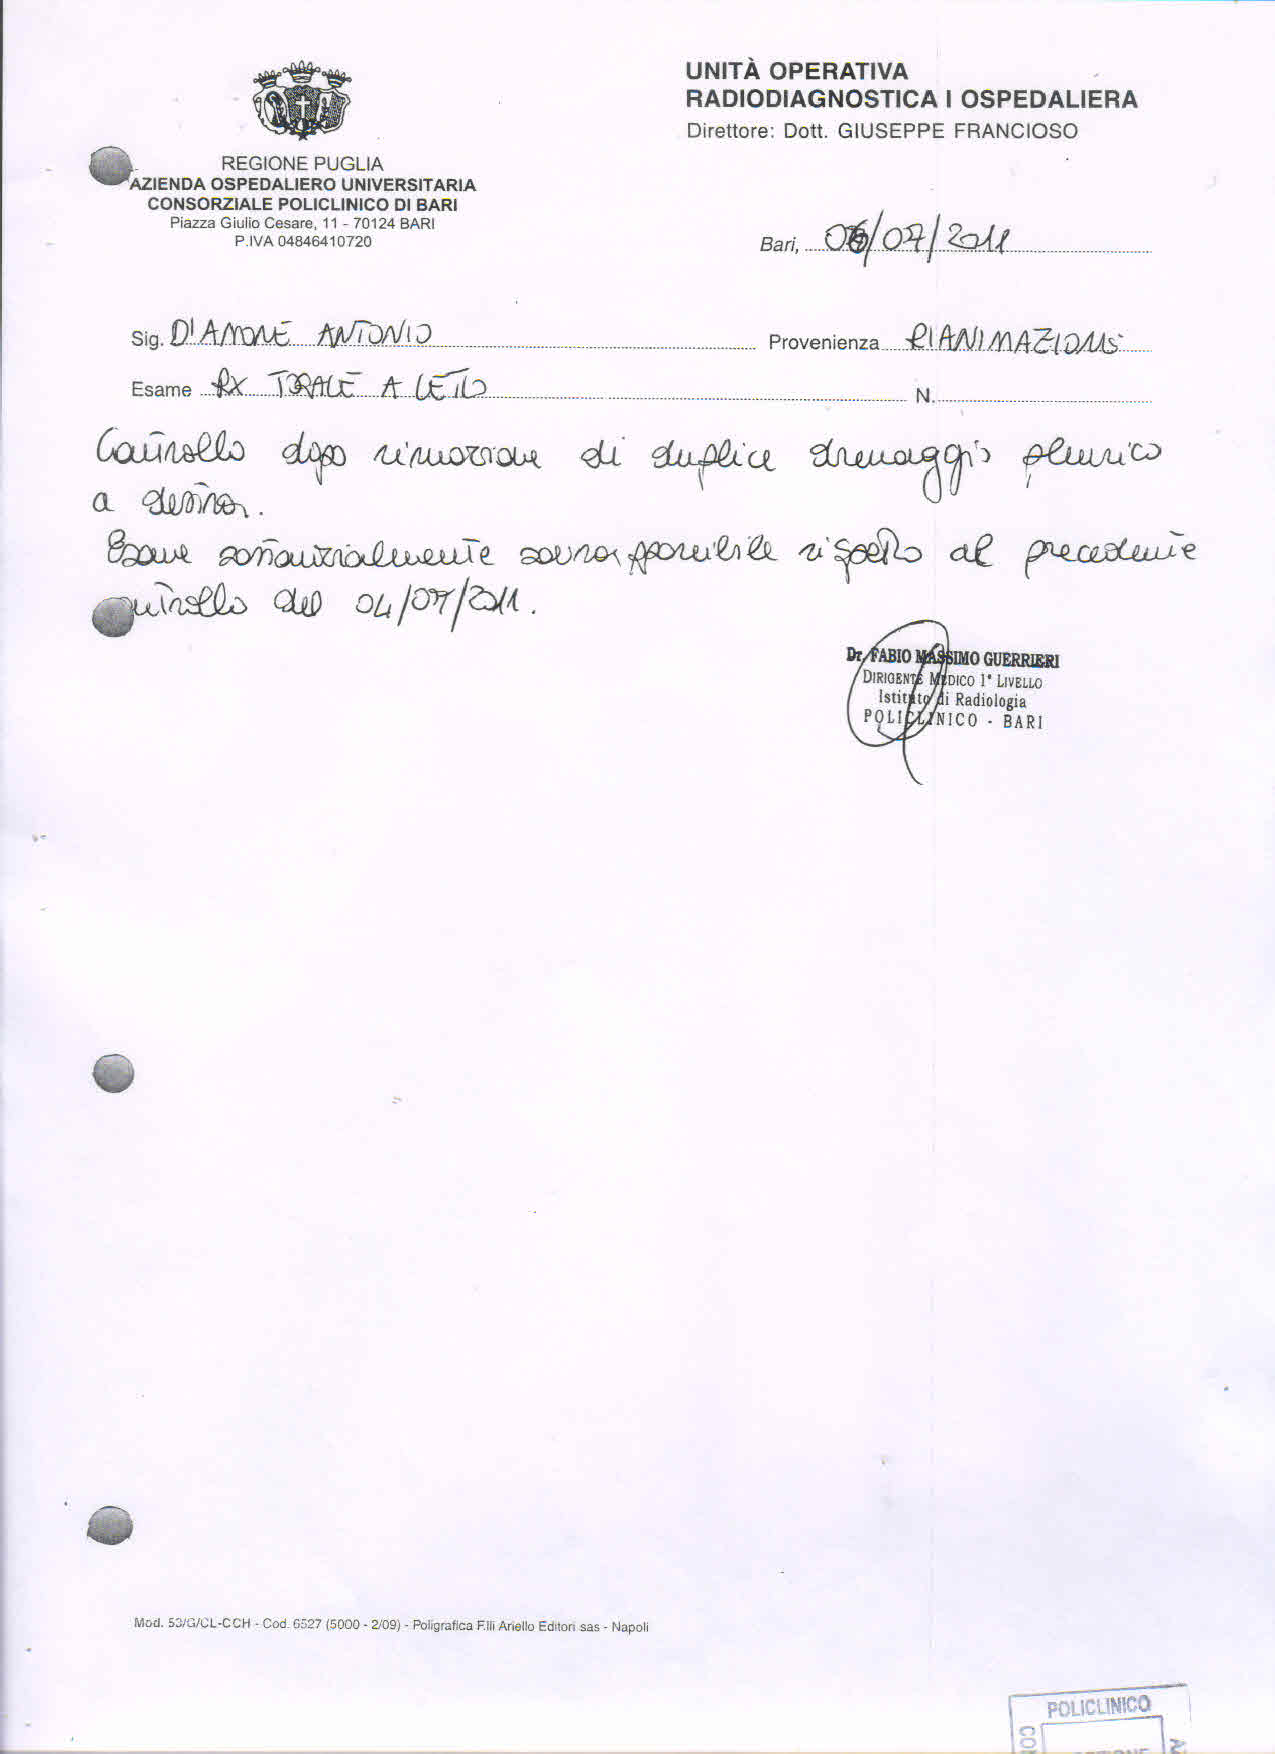 UNITÀ OPERATIVA
RADIODIAGNOSTICA I OSPEDALIERA
Direttore: Dott. GIUSEPPE FRANCIOSO
REGIONE PUGLIA
AZIENDA OSPEDALIERO UNIVERSITARIA
CONSORZIALE POLICLINICO DI BARI
Piazza Giulio Cesare, 11 - 70124 BARI
P.IVA 04846410720
Bari, 06/07/2011
Sig. D'AMONE ANTONIO Provenienza RIANIMAZIONE
Esame RX TORACE A LETTO N.
Controllo dopo rimozione di duplice drenaggio pleurico
a destra.
Esame sostanzialmente sovrapponibile rispetto al precedente
controllo del 04/07/2011.
Dr. FABIO MASSIMO GUERRIERI
DIRIGENTE MEDICO 1° LIVELLO
Istituto di Radiologia
POLICLINICO - BARI
Mod. 53/G/CL-CCH - Cod. 6527 (5000 - 2/09) - Poligrafica F.lli Ariello Editori sas - Napoli
POLICLINICO